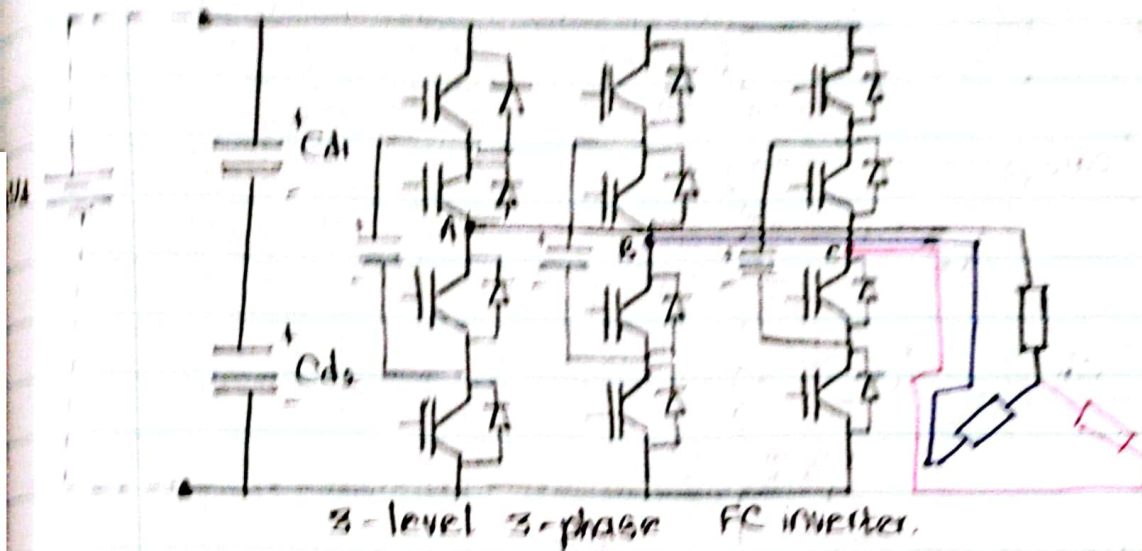 + Cd1
-
+ Cd2
-
A
B
C
+
-
+
-
+
-
3-level 3-phase FC inverter.